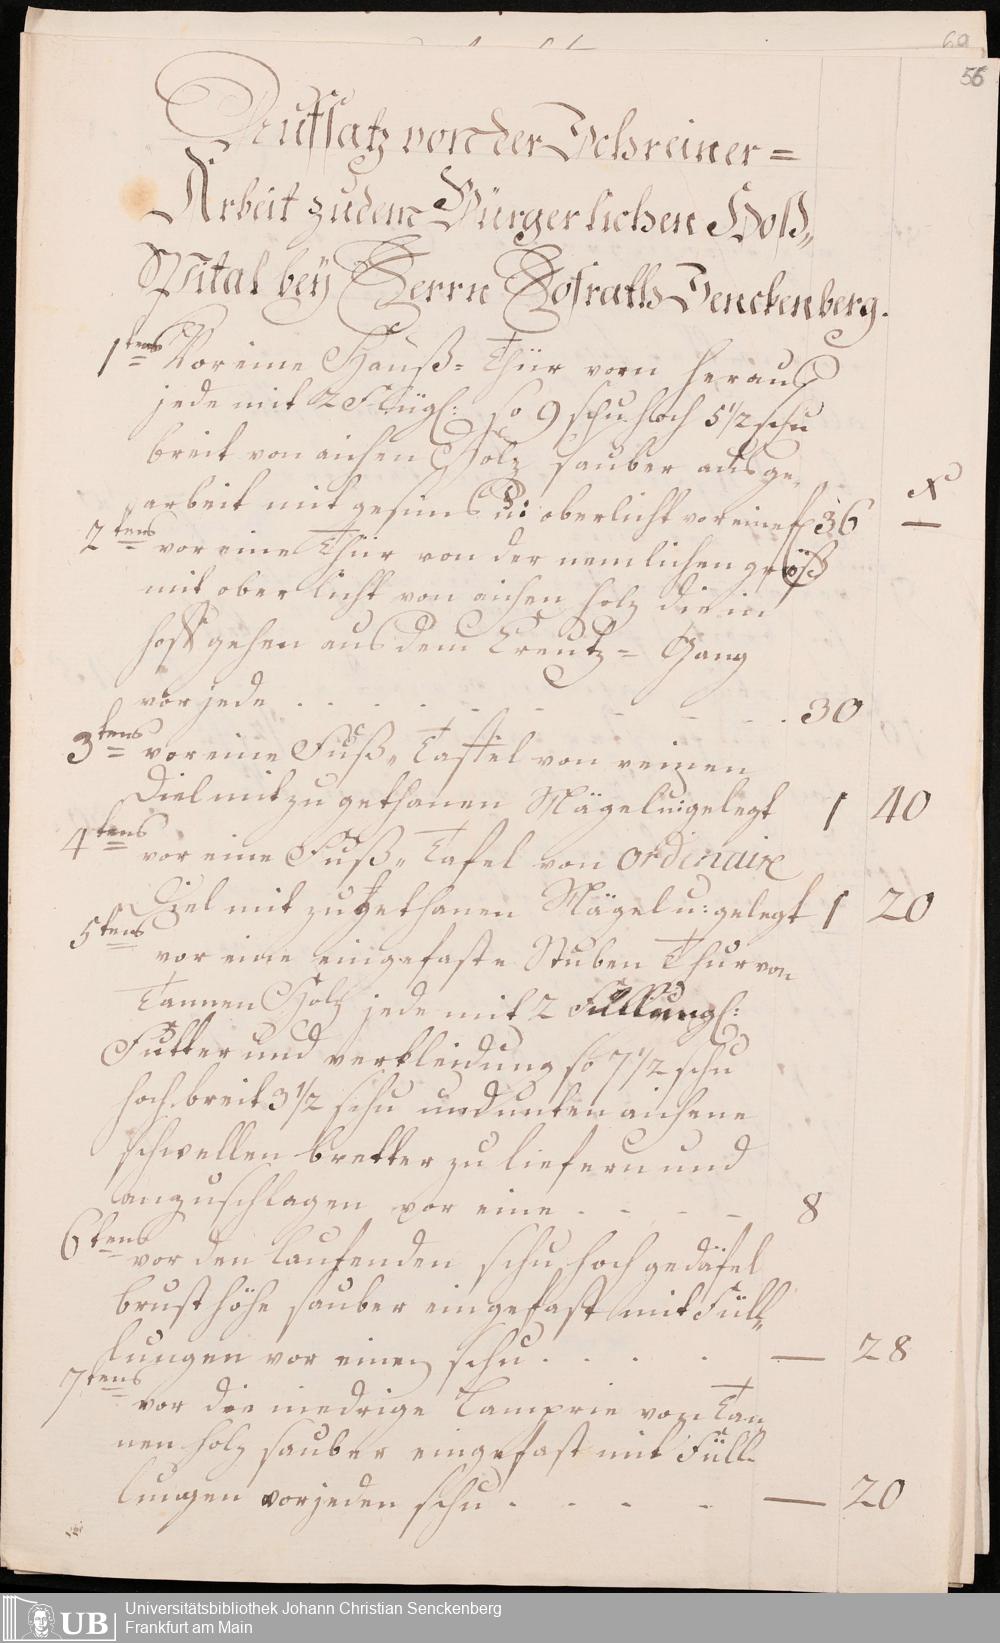 60
56
Auffsatz von der Schreiner=
Arbeit zu dem Bürgerlichen Hoß„
Pital beÿ Herrn Hofrath Senckenberg.
1tens Vor eine Hauß= Thür vorn heraus
jede mit 2 Flügl: so 9 schu hoch 5 1/2 schu
breit von aichen Holz sauber ausge„
arbeit mit gesims u: oberlicht vor eine f 36 x —
2tens vor eine Thür von der nemlichen größ
mit oberlicht von aichen holz die in
hoff gehen aus dem Creutz= Gang
vor jede . . . . . . . . . 30
3tens vor eine Fuß„ Taffel von reinen
Diel mit zu gethanen Nägel u: gelegt 1 40
4tens vor eine Fuß„ Tafel von ordinaire
Diel mit zu gethanen Nägel u: gelegt 1 20
5tens vor eine eingefaste Stuben Thur von
Tannen Holtz jede mit 2 Füllungl:
Futter und verkleidung so 7 1/2 schu
hoch breit 3 1/2 schu und unten aichene
schwellen bretter zu liefern und
anzuschlagen vor eine . - . - 8
6tens vor den laufenden schu hoch gedäfel
brust höhe sauber eingefast mit Füll„
lungen vor einen schu . . . . — 28
7tens vor die niedrige Lamprie von Tan„
nen holz sauber eingefast mit Füll„
lungen vor jeden schu . . . . — 20
UB
Universitätsbibliothek Johann Christian Senckenberg
Frankfurt am Main